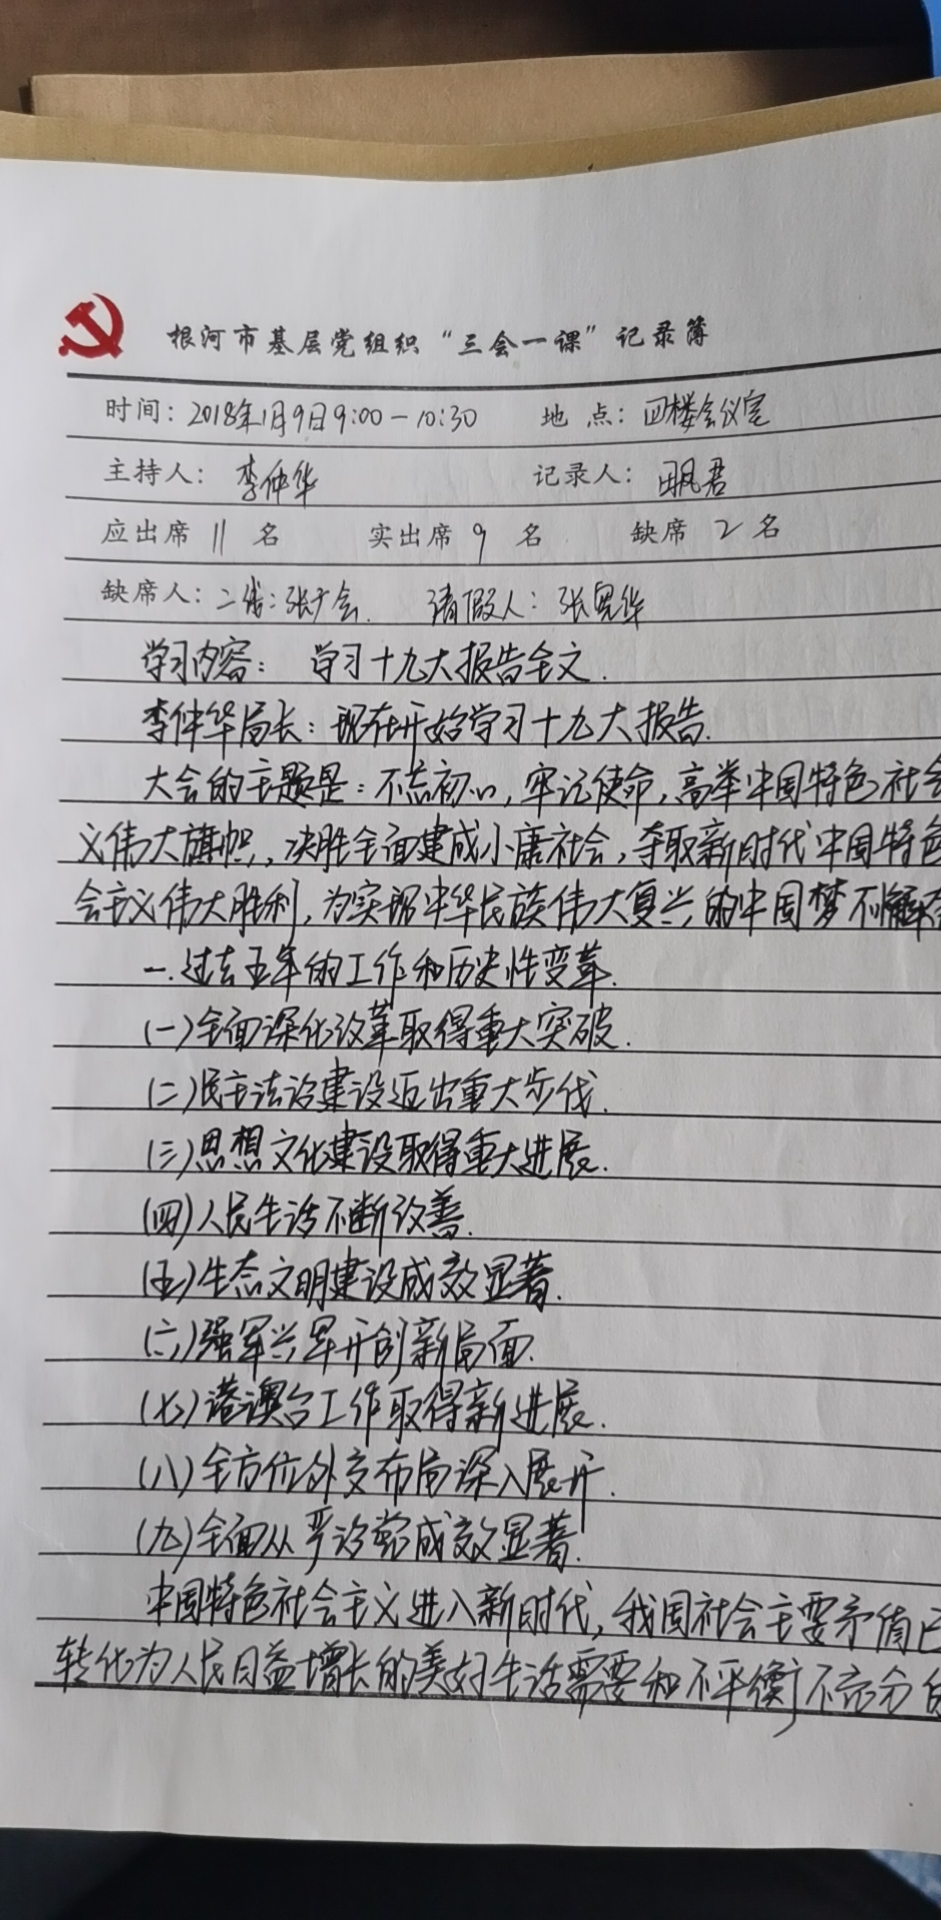 根河市基层党组织“三会一课”记录簿
时间：2018年1月9日9:00-10:30 地点：四楼会议室
主持人：李仲华 记录人：
应出席 11 名 实出席 9 名 缺席 2 名
缺席人：二线：张广会. 请假人：张 华
学习内容： 学习十九大报告全文.
李仲华局长：现在开始学习十九大报告.
大会的主题是：不忘初心，牢记使命，高举中国特色社会
义伟大旗帜，决胜全面建成小康社会，夺取新时代中国特色
会主义伟大胜利，为实现中华民族伟大复兴的中国梦不懈
一.过去五年的工作和历史性变革.
(一)全面深化改革取得重大突破.
(二)民主法治建设迈出重大步伐.
(三)思想文化建设取得重大进展.
(四)人民生活不断改善.
(五)生态文明建设成效显著.
(六)强军兴军开创新局面.
(七)港澳台工作取得新进展.
(八)全方位外交布局深入展开.
(九)全面从严治党成效显著.
中国特色社会主义进入新时代，我国社会主要矛盾已
转化为人民日益增长的美好生活需要和不平衡不充分的